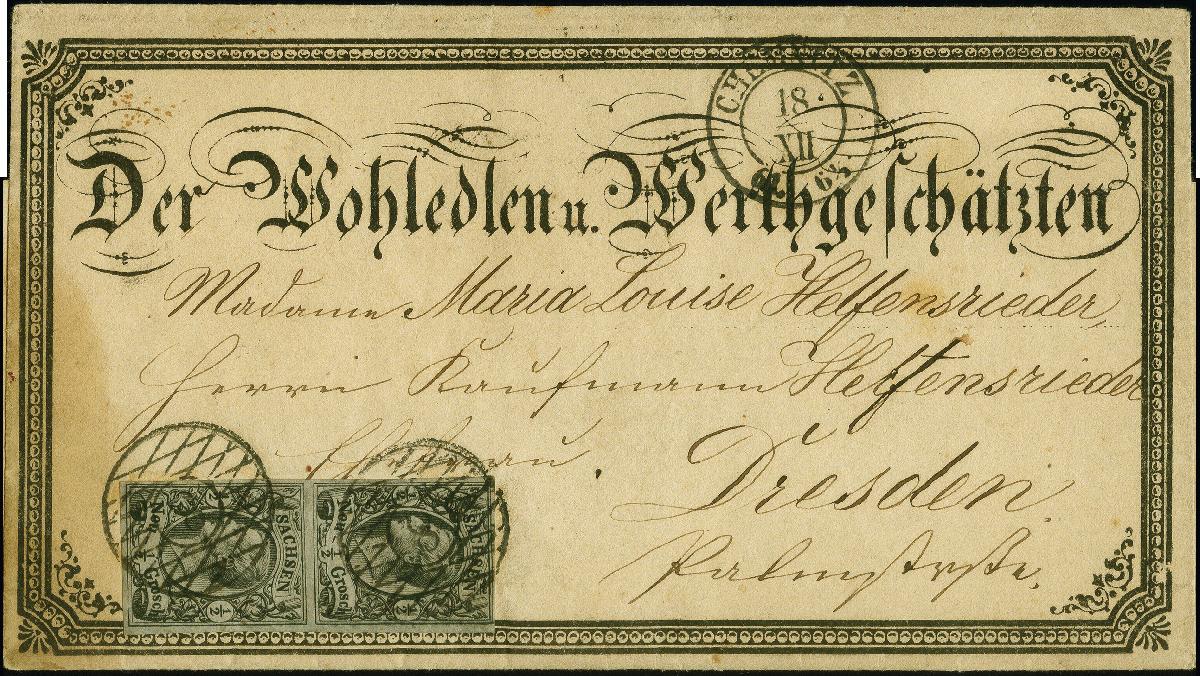 CHEMNITZ
18
XII
Der Wohledlen u. Werthgeschätzten
Madame Maria Louise Helfensrieder,
Herrn Kaufmann Helfensrieder
Ehefrau.
Dresden
Palmstrße.
SACHSEN
Neu 1/2 Grosch
1/2
1/2
SACHSEN
Neu 1/2 Grosch
1/2
1/2